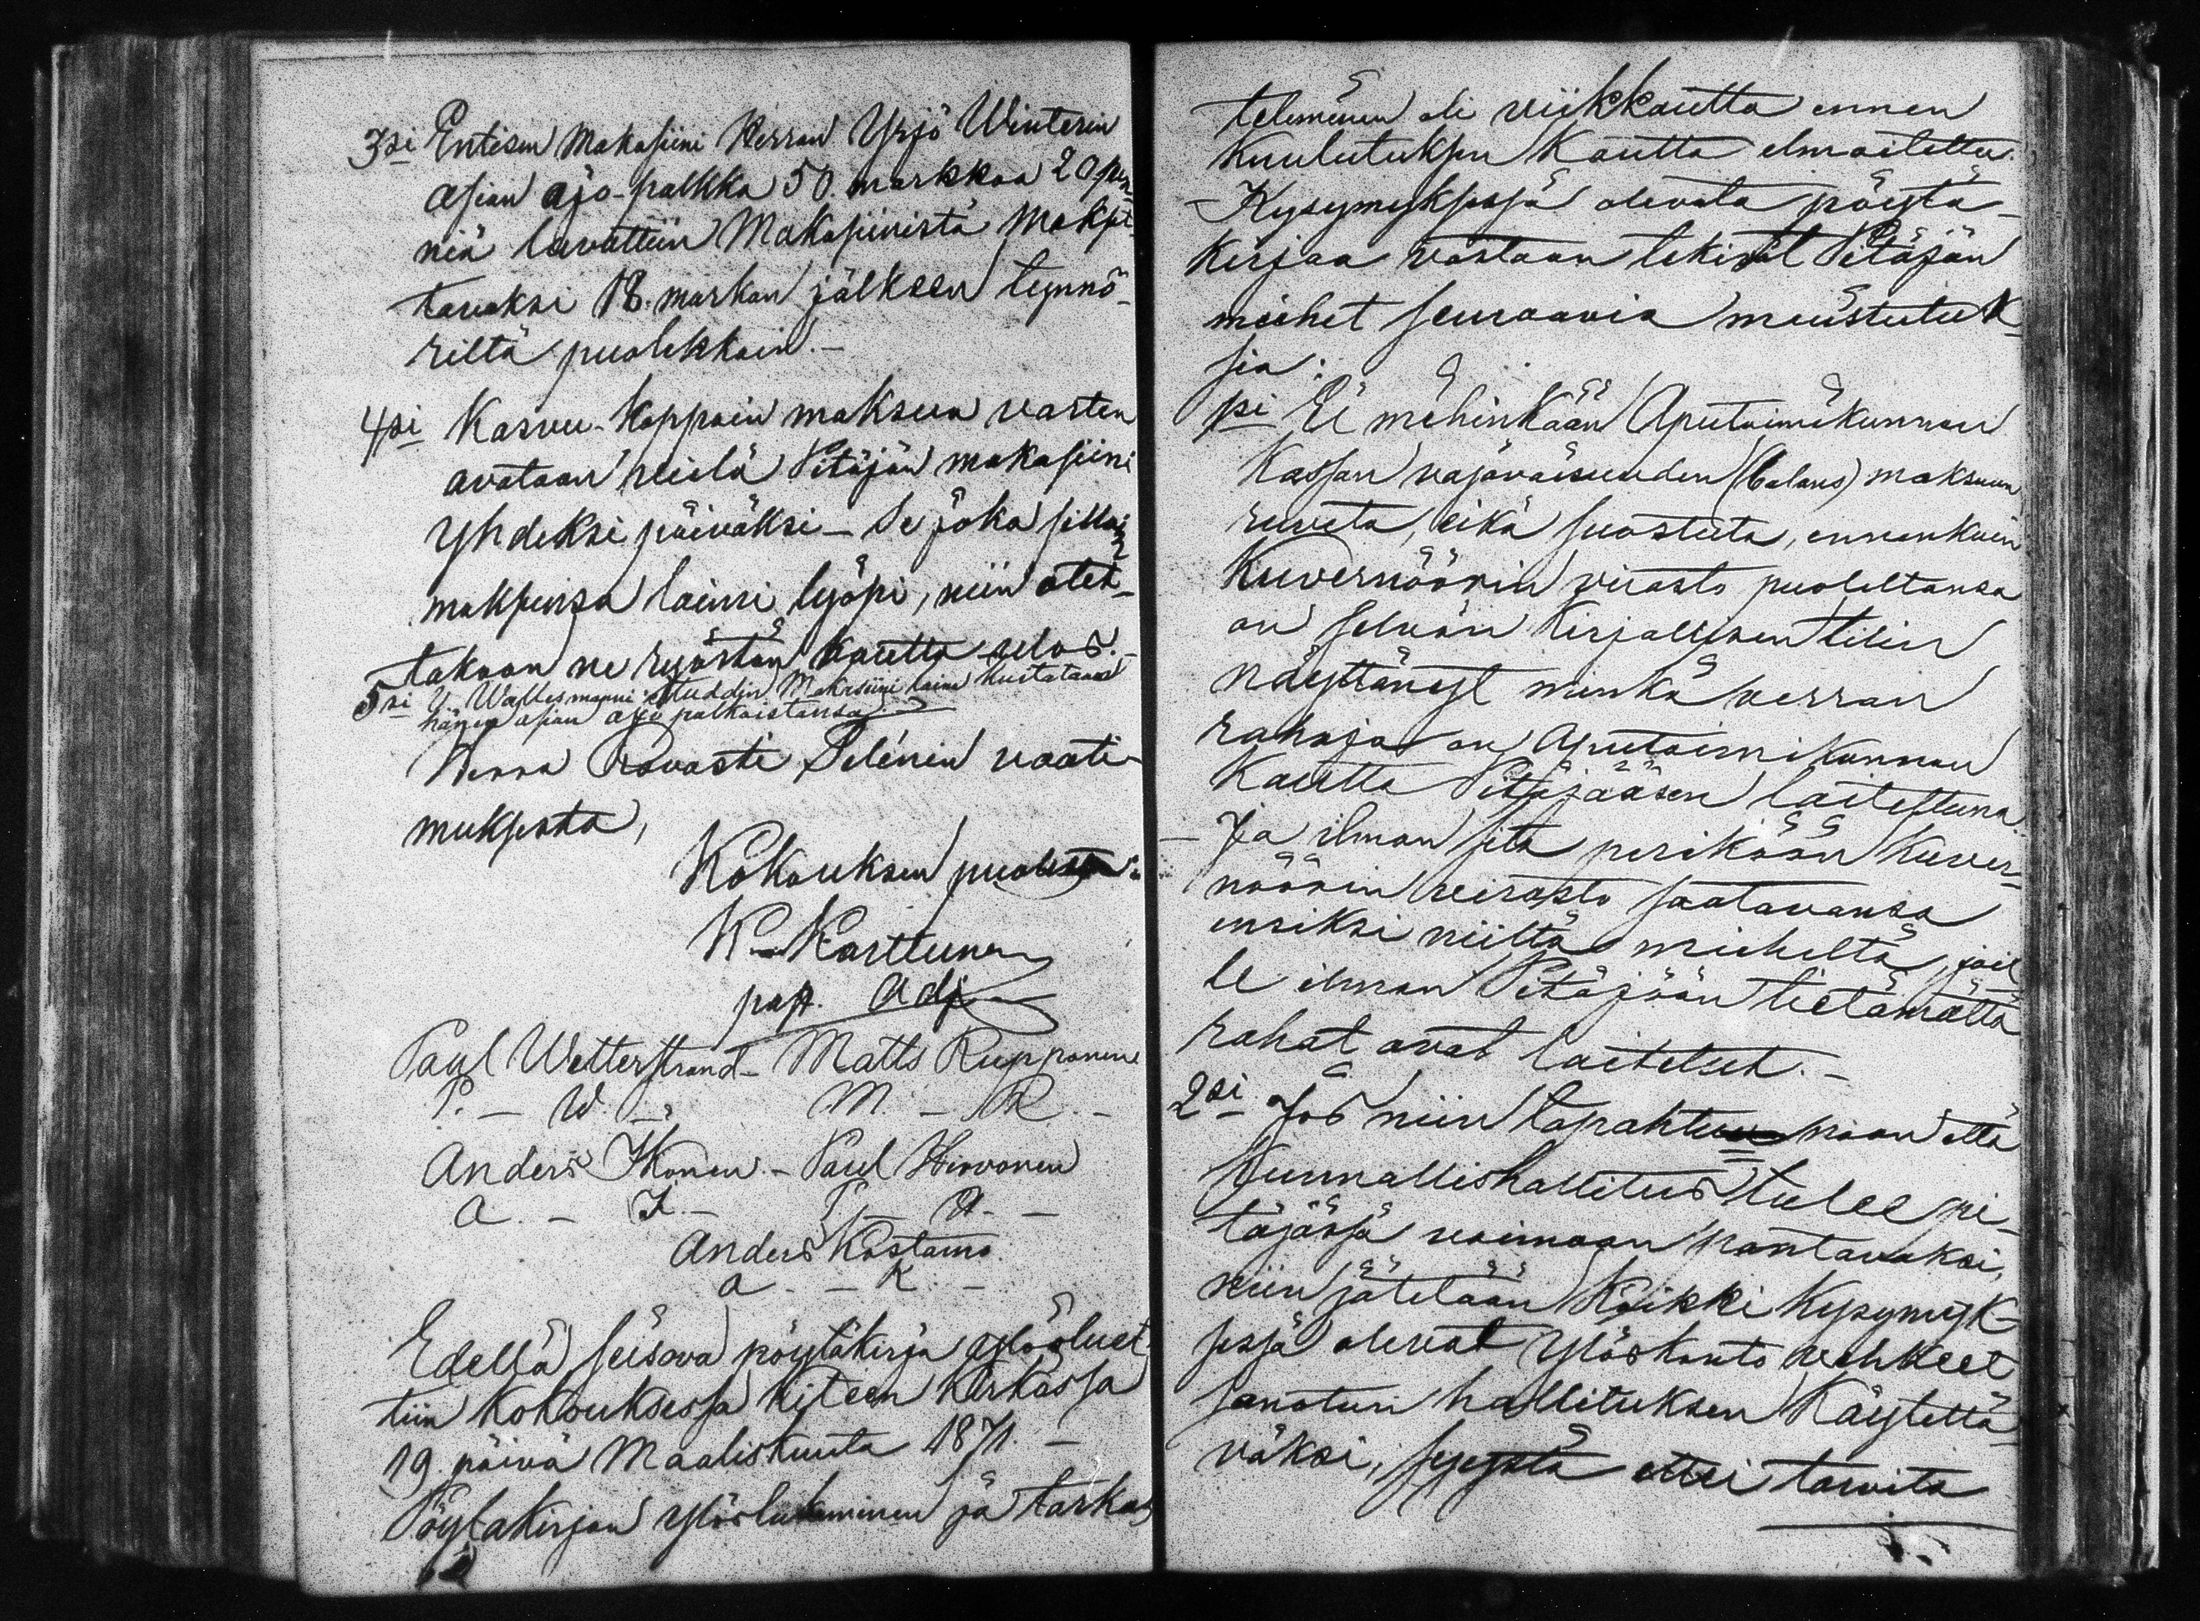 3si Entisen Makasiini Herran Yrjö Winterin
asian ajo-palkka 50. markkaa 20 pen-
niä luvattiin Makasiinista Makset-
tavaksi 18. markan jälkeen tynnö-
riltä puolikkoin.-
4si Kasvu-Kappain maksua varten
avataan vielä Pitäjän makasiini
Yhdeksi päiväksi - Se joka silloin
maksunsa laimi lyöpi, niin otet-
takoon ne ryöstön kautta ulos.-
5si Y. Wallesmanni Makasiini laina kustataan
hänen asian ajo palkaistansa
Herra Provasti Selénin vaati-
muksesta,
Kokouksen puolesta:
K. Karttunen
past. Adj
Paul Wetterstrand - Matts Rupponen
P. - W. - M. - R. -
Anders Ikonen. - Paul Hirvonen
A. - I. - P. - H. -
Anders Kostamo
A. - K. -
Edellä seisova pöytäkirja ylösluet-
tiin Kokouksessa Kiteen Kirkossa
19. päivä Maaliskuuta 1871. -
Pöytäkirjan ylöslukeminen ja tarkas-
teleminen oli viikkautta ennen
Kuulutuksen Kautta ilmoitettu.
- Kysymyksessä olevata pöytä-
Kirjaa vastaan tekivät Pitäjän
miehet seuraavia muistutuk-
sia:
1si Ei mihinkään Aputoimikunnan
Kassan vajavaisuuden (balans) maksuun
ruveta, eikä suostuta, ennenkuin
Kuvernöörin virasto puoleltansa
on selvän Kirjallisen tilin
näyttänyt minkä verran
rahoja on Aputoimikunnan
Kautta Pitäjääsen laitettuna.
- Ja ilman sitä periköön Kuver-
nöörin virasto saatavansa
ensiksi niiltä miehiltä, joil-
le ilman Pitäjään tietämättä
rahat ovat laitetut. -
2si Jos niin tapahtuu että
Kunnallishallitus tulee pi-
täjässä voimaan pantavaksi,
niin jätetään Kaikki Kysymyk-
sessä olevat Ylöskanto vehkeet
sanotun hallituksen Käytettä-
väksi, syystä ettei tarvita